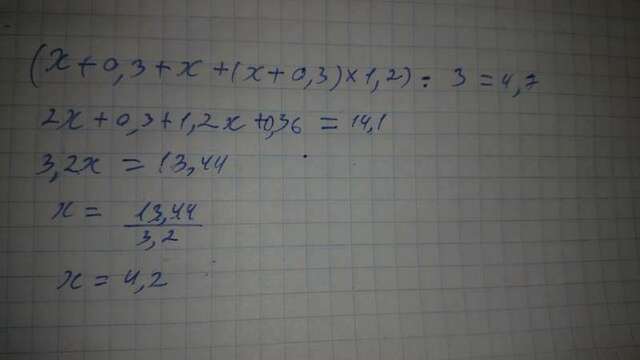 (x+0,3+x+(x+0,3)×1,2):3=4,7
2x+0,3+1,2x+0,36=14,1
3,2x=13,44
x=13,44/3,2
x=4,2